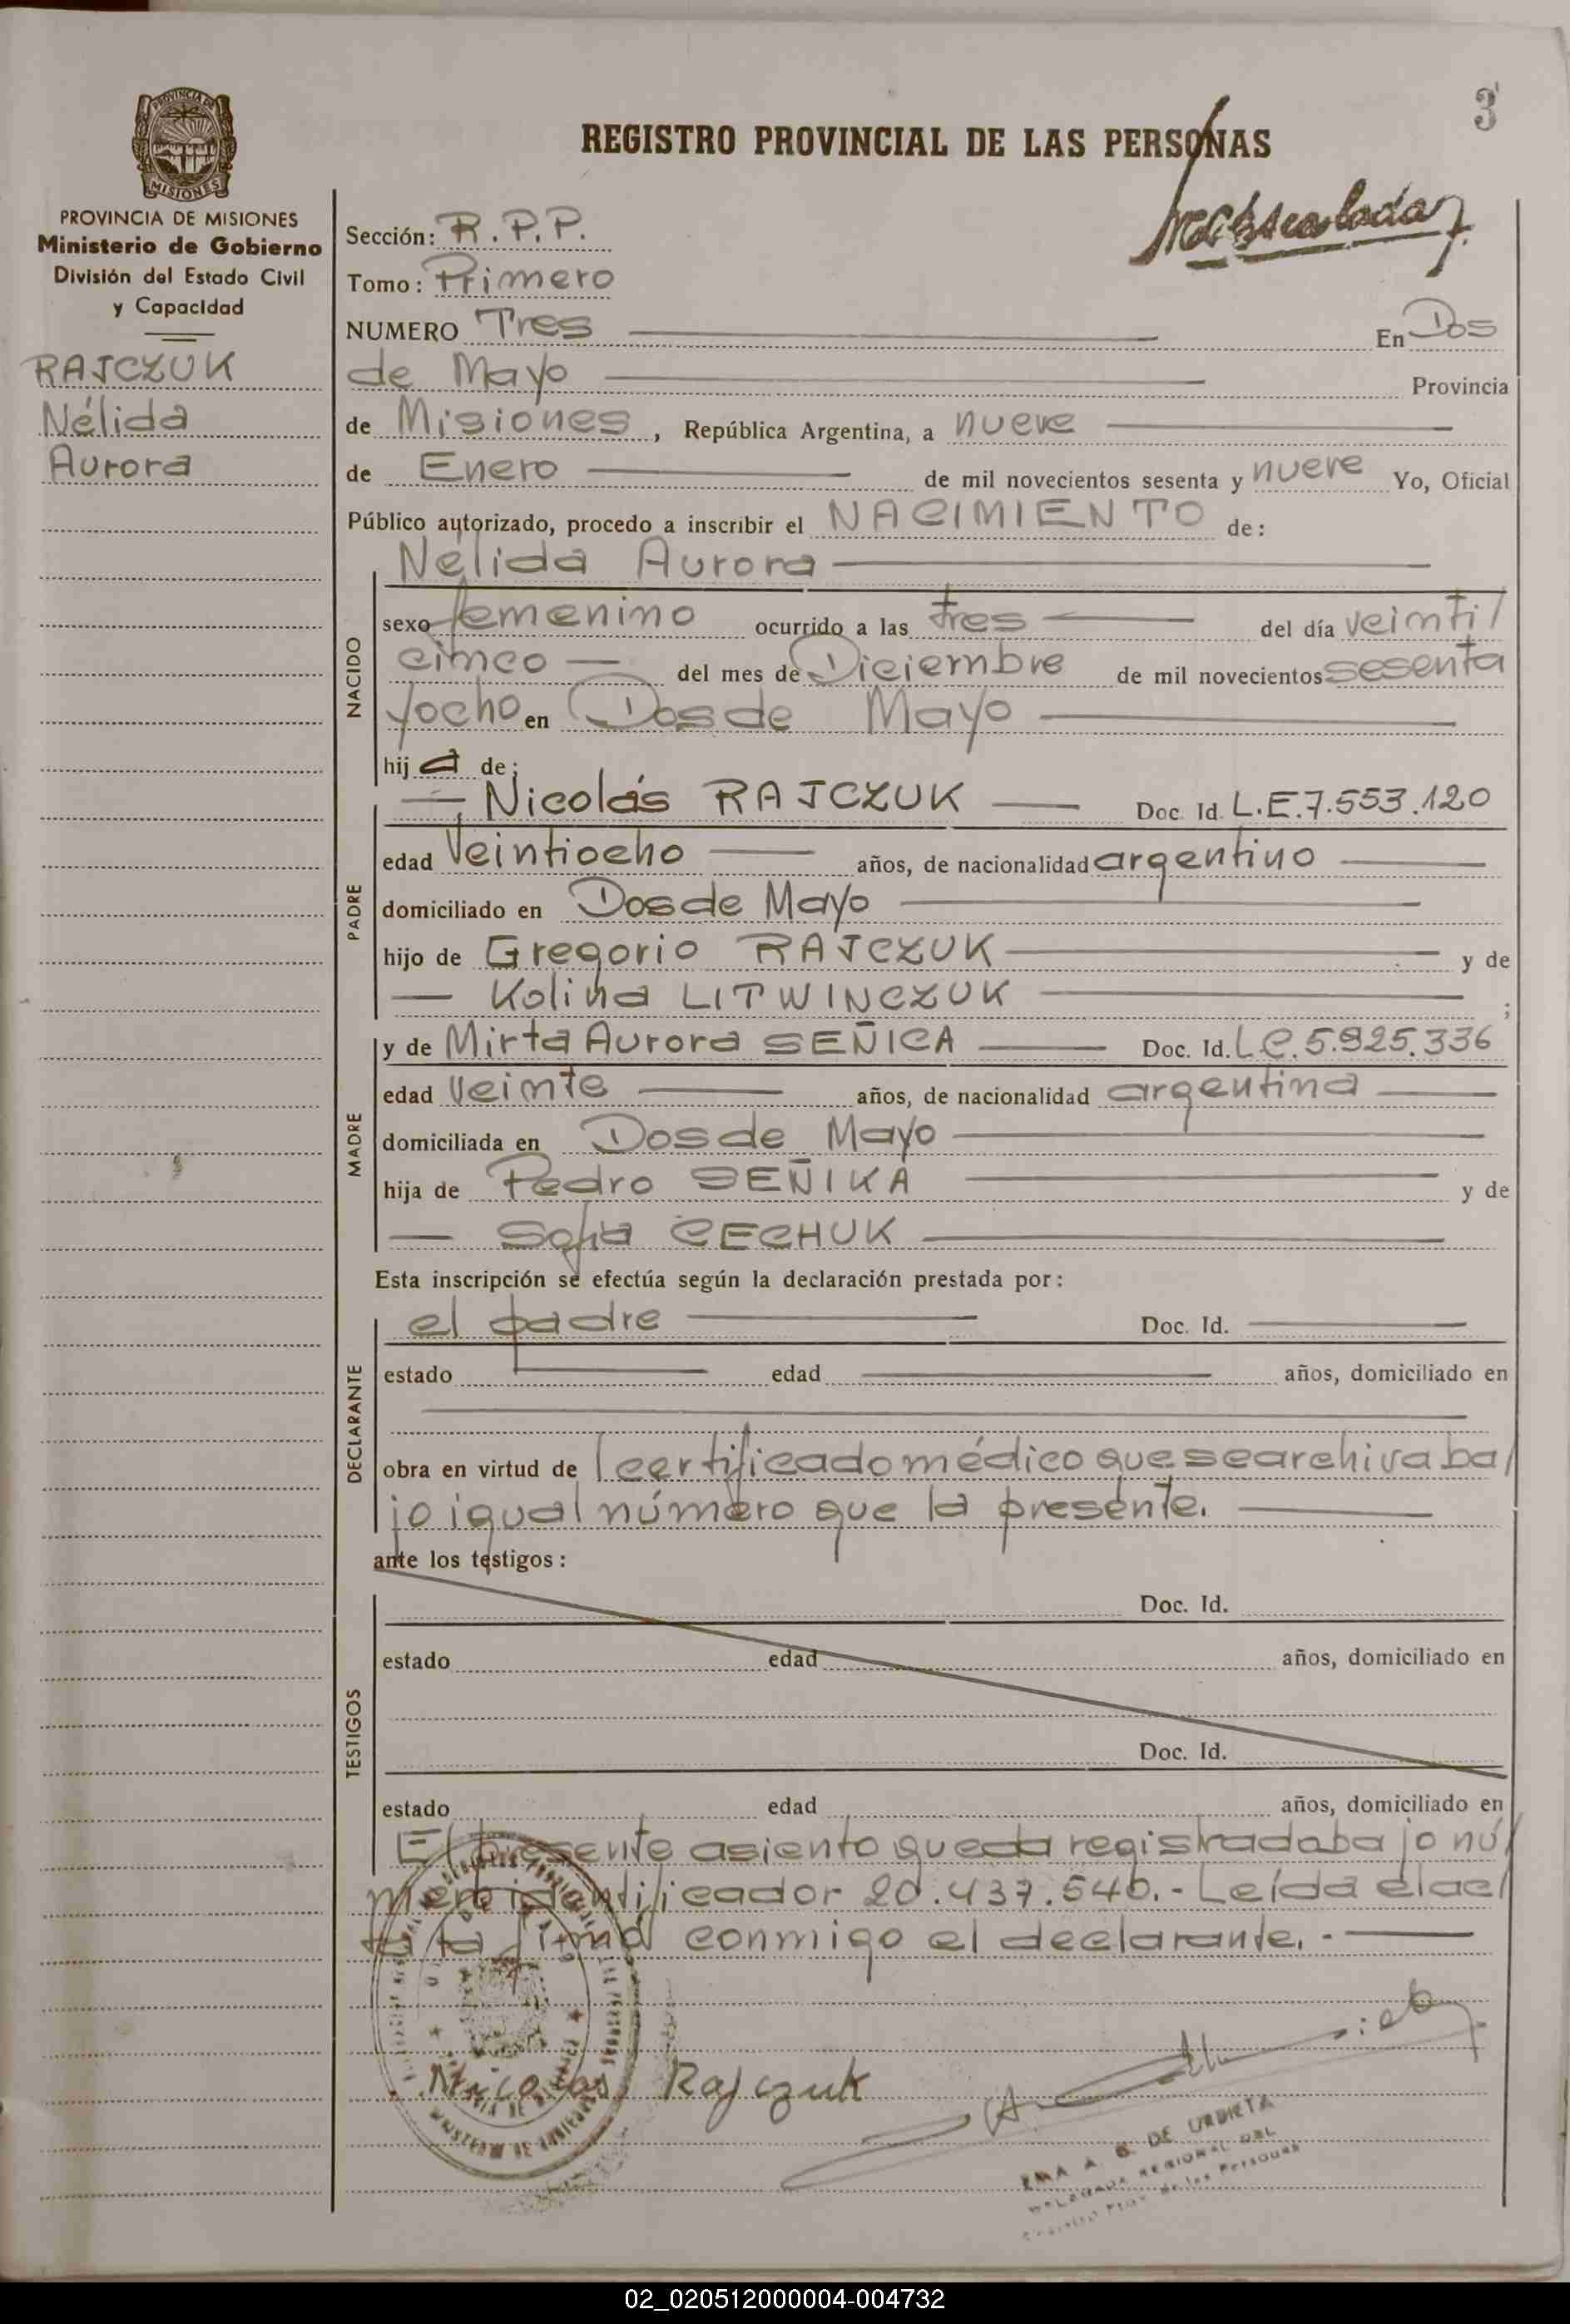 3
REGISTRO PROVINCIAL DE LAS PERSONAS
PROVINCIA DE
MISIONES
PROVINCIA DE MISIONES
Ministerio de Gobierno
División del Estado Civil
y Capacidad
RAJCZUK
Nélida
Aurora
Sección: R.P.P.
Tomo: Primero
NUMERO Tres En Dos
de Mayo Provincia
de Misiones, República Argentina, a nueve
de Enero de mil novecientos sesenta y nueve Yo, Oficial
Público autorizado, procedo a inscribir el NACIMIENTO de:
Nélida Aurora
NACIDO
sexo femenino ocurrido a las tres del día veinti/
cinco del mes de Diciembre de mil novecientos sesenta
y ocho en Dos de Mayo
hija de:
PADRE
Nicolás RAJCZUK Doc. Id. L.E.7.553.120
edad Veintiocho años, de nacionalidad argentino
domiciliado en Dos de Mayo
hijo de Gregorio RAJCZUK y de
Kolina LITWINCZUK ;
MADRE
y de Mirta Aurora SEÑICA Doc. Id. L.C.5.925.336
edad veinte años, de nacionalidad argentina
domiciliada en Dos de Mayo
hija de Pedro SEÑIKA y de
Sofia CECHUK
Esta inscripción se efectúa según la declaración prestada por:
DECLARANTE
el padre Doc. Id.
estado edad años, domiciliado en
obra en virtud de l certificado médico que se archiva ba/
jo igual número que la presente.
ante los testigos:
TESTIGOS
Doc. Id.
estado edad años, domiciliado en
Doc. Id.
estado edad años, domiciliado en
El presente asiento queda registrado bajo nú/
mero identificador 20.437.540.- Leída el ac/
ta la firma conmigo el declarante.-
Nicolas Rajczuk
EMA A. B. DE URBIETA
DELEGADA REGIONAL DEL
de las Personas
02_020512000004-004732